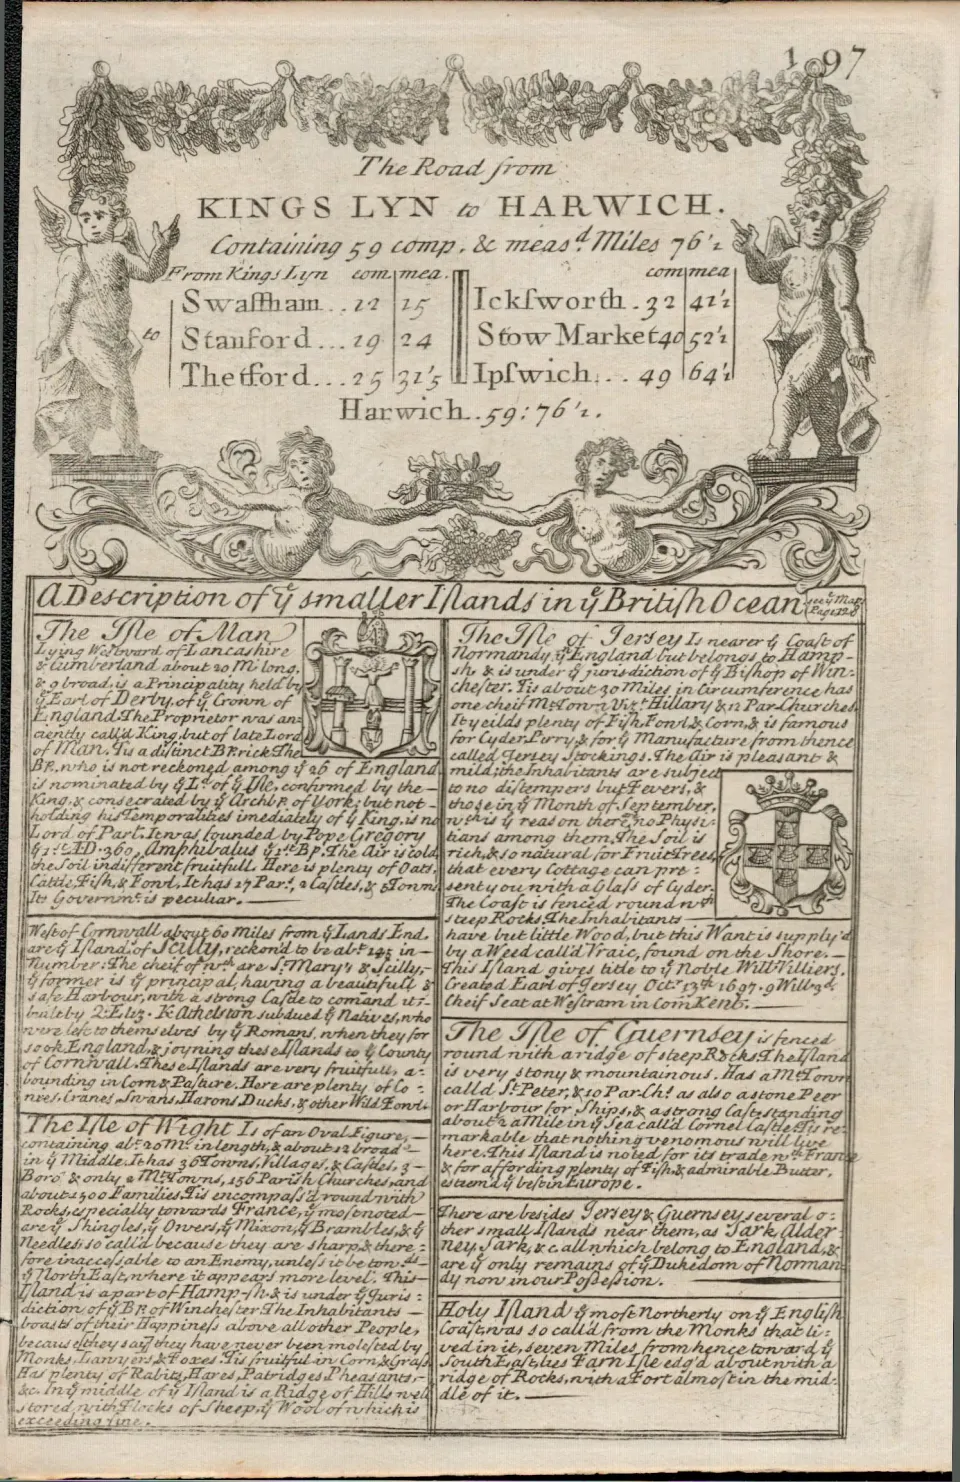 197
The Road from
KINGS LYN to HARWICH.
Containing 59 comp. & meas.d Miles 76'2
From Kings Lyn com. mea. com mea
to
Swaffham .. 12 15
Stanford ... 19 24
Thetford ... 25 31'5
Ickſworth . 32 41'2
Stow Market 40 52'2
Ipſwich ... 49 64'2
Harwich .. 59 : 76'2.
A Description of ẙ smaller Iſlands in ẙ Britiſh Ocean see ẙ Map Page 128
The Iſle of Man
Lying Westward of Lancashire
& Cumberland about 20 Ml. long,
& 9 broad, is a Principality held by
ẙ Earl of Derby, of ẙ Crown of
England. The Proprietor was an-
ciently call'd King, but of late Lord
of Man. Tis a diſtinct BP.rick The
BP. who is not reckoned among ẙ 26 of England
is nominated by ẙ Ld. of ẙ Iſle, confirmed by the
King, & consecrated by ẙ Archbp. of York; but not
holding his Temporalities imediately of ẙ King, is no
Lord of Parlt. It was founded by Pope Gregory
ẙ 1st. AD. 360, Amphibalus ẙ 1st BP. The Air is cold,
the Soil indifferent fruitfull. Here is plenty of Oats,
Cattle, Fiſh, & Fowl. It has 17 Par.s, 2 Caſtles, & 5 Towns
Its Governmt. is peculiar.
Weſt of Cornwall about 60 Miles from ẙ Lands End,
are ẙ Iſland.s of Scilly, reckon'd to be abt. 145 in
Number: The cheif of wch. are St. Mary's & Scilly,
ẙ former is ẙ principal, having a beautifull &
safe Harbour, with a strong Caſtle to comand it:
built by Q: Eliz. K Athelſton subdued ẙ Natives, who
were left to themselves by ẙ Romans, when they for
sook England, & joyning these Iſlands to ẙ County
of Cornwall. These Iſlands are very fruitfull, a-
bounding in Corn & Paſture. Here are plenty of Co-
nies, Cranes, Swans, Harons, Ducks, & other Wild Fowl.
The Iſle of Wight Is of an Oval Figure,
containing abt. 20 Ml. in length, & about 12 broad
in ẙ Middle. It has 36 Towns, Villages, & Caſtles, 3
Boro.s & only 2 Mt. Towns, 156 Pariſh Churches, and
about 1500 Families. Tis encompaſs'd round with
Rocks, especially towards France, ẙ moſt noted
are ẙ Shingles, ẙ Owers, ẙ Mixon, ẙ Brambles, & ẙ
Needles, so call'd because they are sharp, & there-
fore inaccessable to an Enemy, unleſs it be tow.ds
ẙ North East, where it appears more level. This
Iſland is a part of Hamp-ſh & is under ẙ Juris-
diction of ẙ BP. of Wincheſter The Inhabitants
boasts of their Happineſs above all other People,
because they say they have never been moleſted by
Monks, Lawyers, & Foxes. Tis fruitful in Corn & Graſs
Has plenty of Rabits, Hares, Patridges, Pheasants,
&c. In ẙ middle of ẙ Iſland is a Ridge of Hills well
stored with Flocks of Sheep, ẙ Wool of which is
exceeding fine.
The Iſle of Jersey Is nearer ẙ Coaſt of
Normandy, ẙ England but belongs to Hamp-
sh, & is under ẙ jurisdiction of ẙ Bishop of Win-
cheſter. Tis about 30 Miles in Circumference has
one cheif Mt. Town Viz.t Hillary & 12 Par. Churches
It yeilds plenty of Fiſh, Fowl, & Corn, & is famous
for Cyder, Perry, & for ẙ Manufacture from thence
called Jersey Stockings. The Air is pleasant &
mild; the Inhabitants are subject
to no diſtempers but Fevers, &
those in ẙ Month of September,
wch. is ẙ reason there's no Physi-
tians among them. The Soil is
rich, & so natural for Fruit Trees,
that every Cottage can pre-
sent you with a Glaſs of Cyder.
The Coaſt is fenced round wth
steep Rocks. The Inhabitants
have but little Wood, but this Want is supply'd
by a Weed call'd Vraic, found on the Shore.
This Iſland gives title to ẙ Noble Will: Villiers,
Created Earl of Jersey Octr. 13th 1697.
Cheif Seat at Weſtram in Com. Kent.
The Iſle of Guernsey is fenced
round with a ridge of steep Rocks. The Iſland
is very stony & mountainous. Has a Mt. Town
call'd St. Peter, & 10 Par. Ch.s as also a stone Peer
or Harbour for Ships, & a strong Caſt. standing
about 2 a Mile in ẙ Sea call'd Cornel Caſtle. Tis re-
markable that nothing venomous will live
here. This Iſland is noted for its trade wth. France
& for affording plenty of Fiſh, & admirable Butter,
esteem'd ẙ best in Europe.
There are besides Jersey & Guernsey several o-
ther small Iſlands near them, as Sark, Alder-
ney, Jark, &c. all which belong to England, &
are ẙ only remains of ẙ Dukedom of Norman-
dy now in our Poſſession.
Holy Iſland ẙ moſt Northerly on ẙ Engliſh
Coaſt, was so call'd from the Monks that li-
ved in it, seven Miles from hence toward ẙ
South East, lies Farn Iſle edg'd about with a
ridge of Rocks, with a Fort almoſt in the mid-
dle of it.